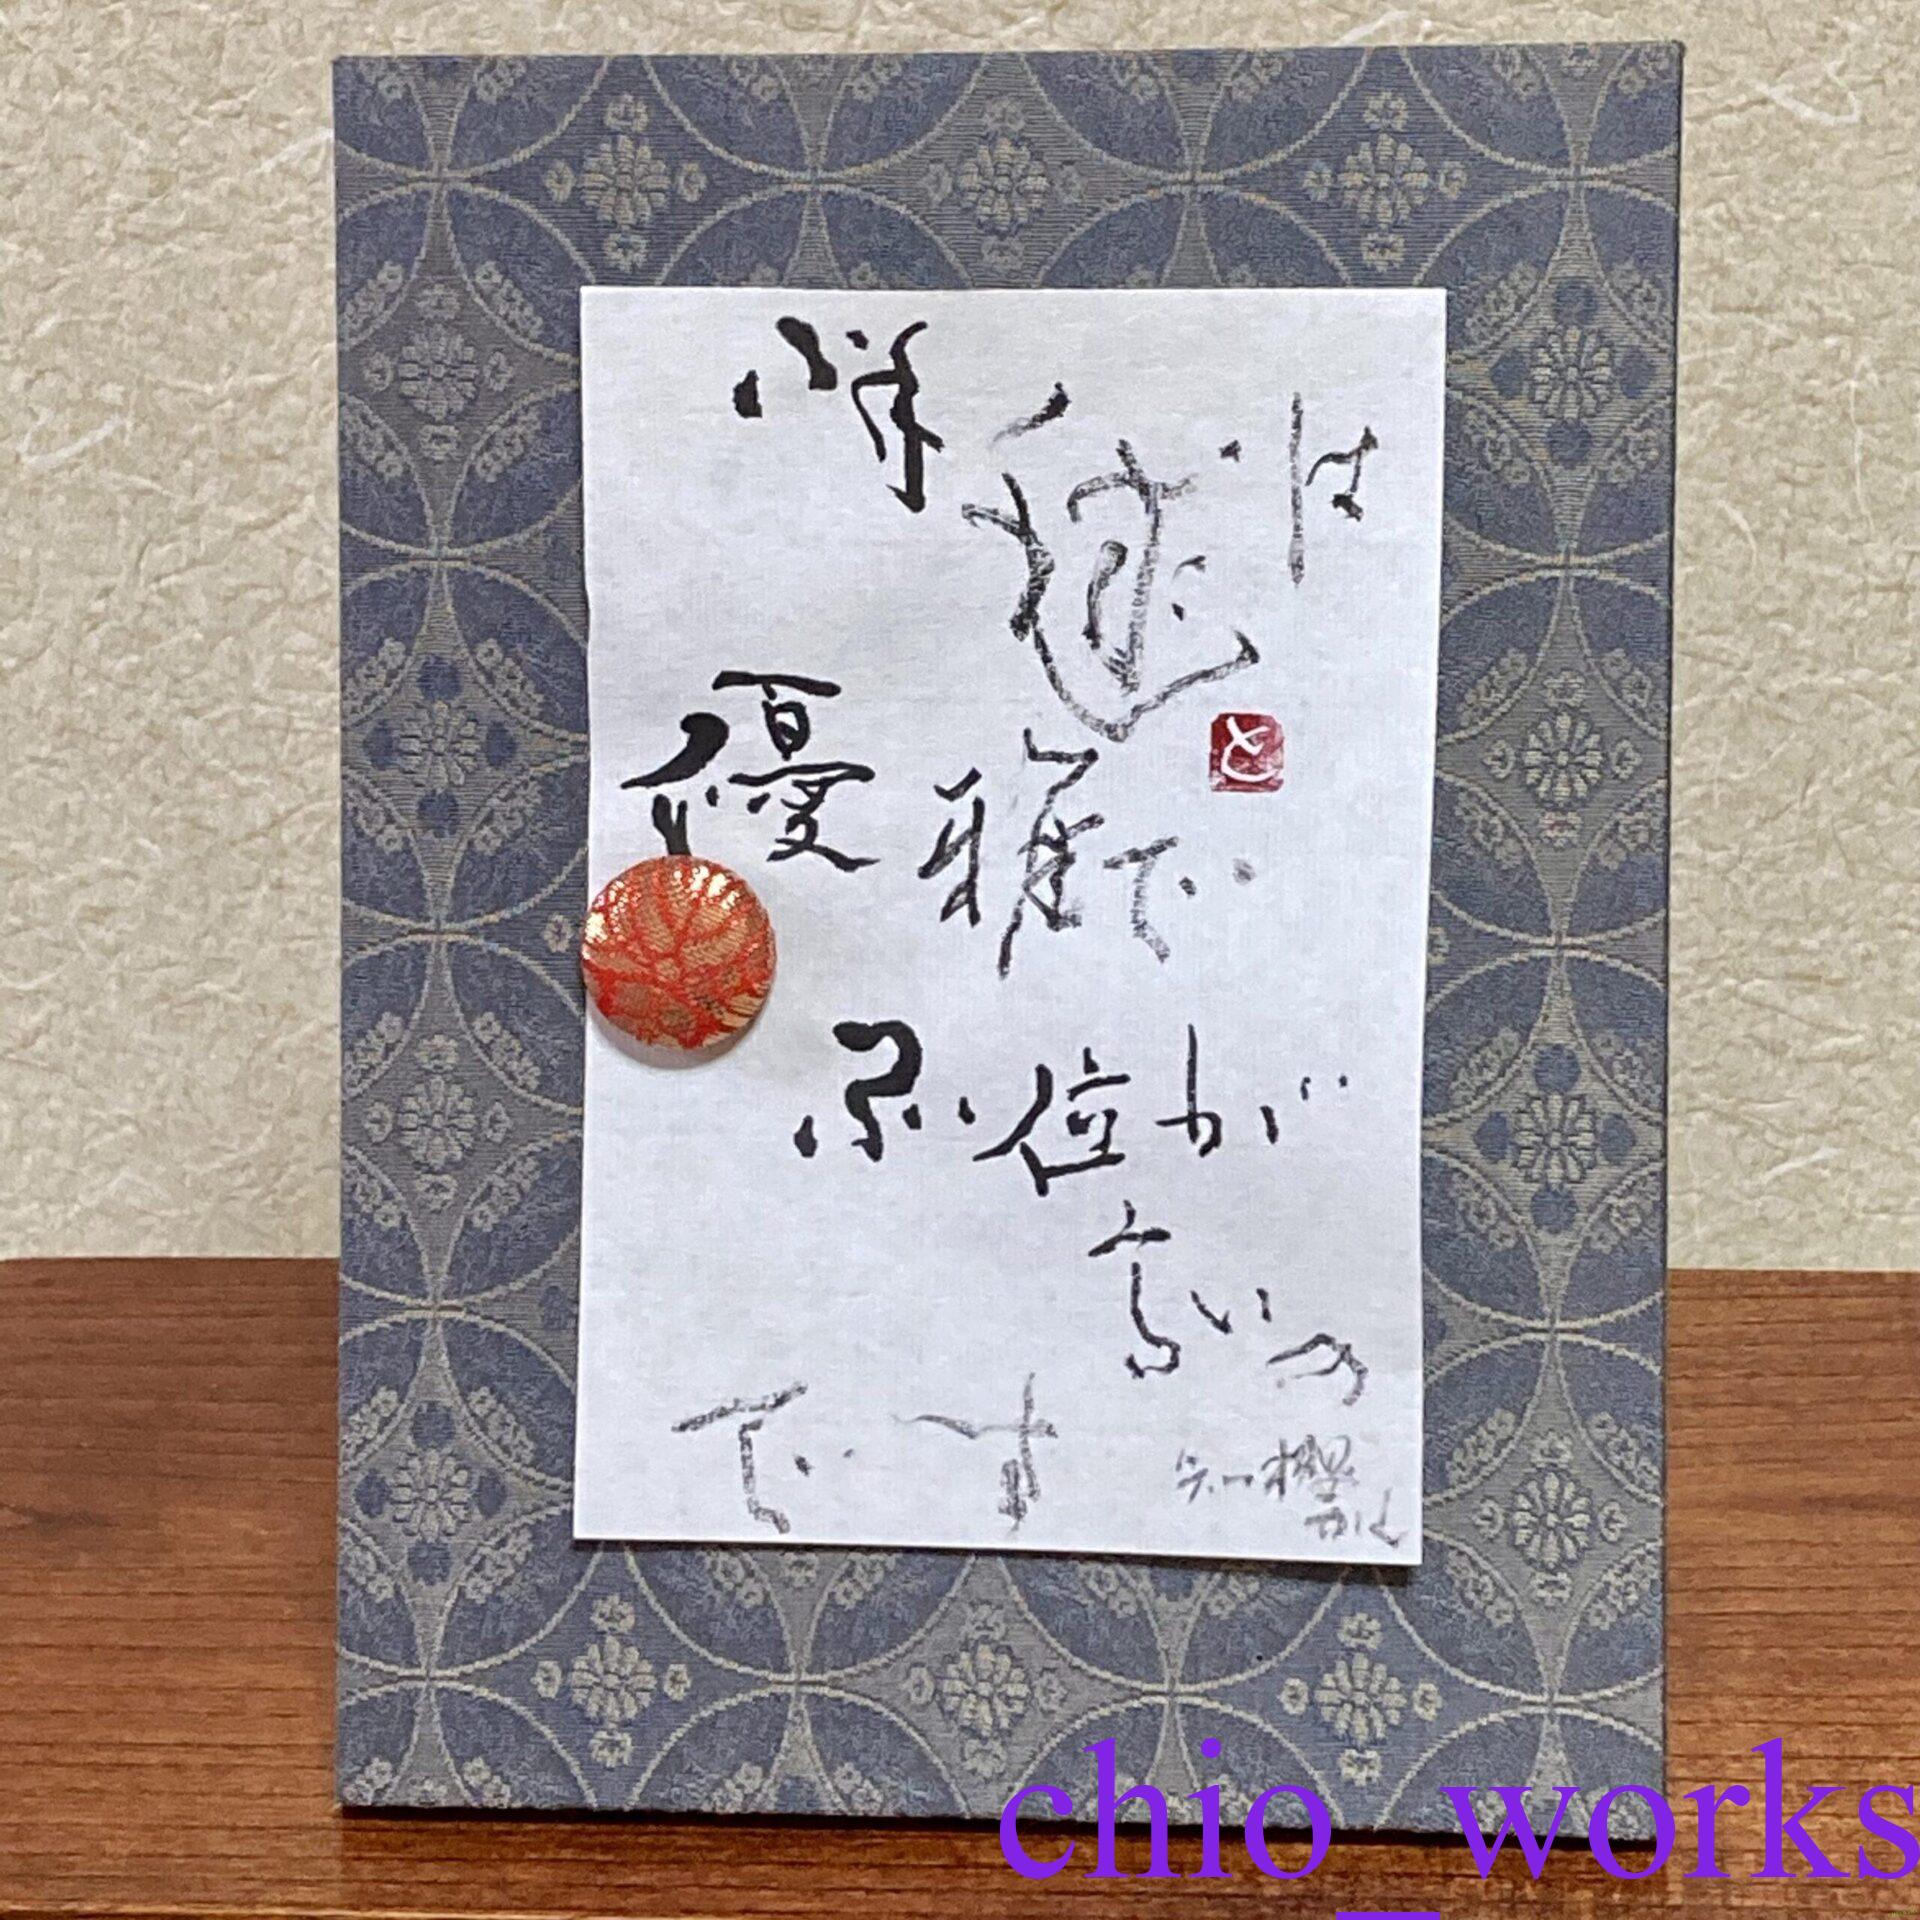 は
優雅で
品位が
高いの
です
かく
と
chio_works